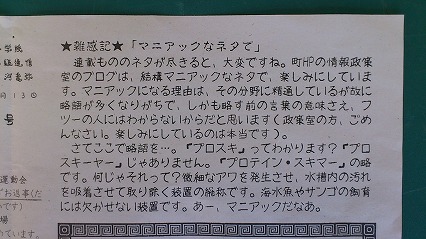 ★雑感記★「マニアックなネタで」
連載もののネタが尽きると、大変ですね。町HPの情報政策
室のブログは、結構マニアックなネタで、楽しみにしていま
す。マニアックになる理由は、その分野に精通しているが故に
略語が多くなりがちで、しかも略す前の言葉の意味さえ、フ
ツーの人にはわからないからだと思います(政策室の方、ごめ
んなさい。楽しみにしているのは本当です)。
さてここで略語を…。『プロスキ』ってわかります?『プロ
スキーヤー』じゃありません。『プロテイン・スキマー』の略
です。何じゃそれって?微細なアワを発生させ、水槽内の汚れ
を吸着させて取り除く装置の総称です。海水魚やサンゴの飼育
には欠かせない装置です。あー、マニアックだなあ。
号
運動会